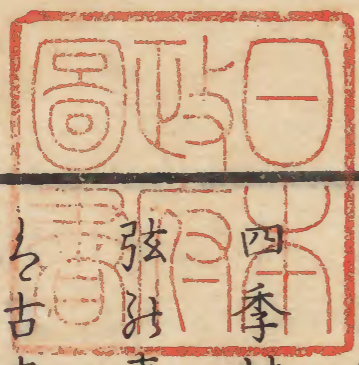 日本
政府
圖書
四季
弦
古